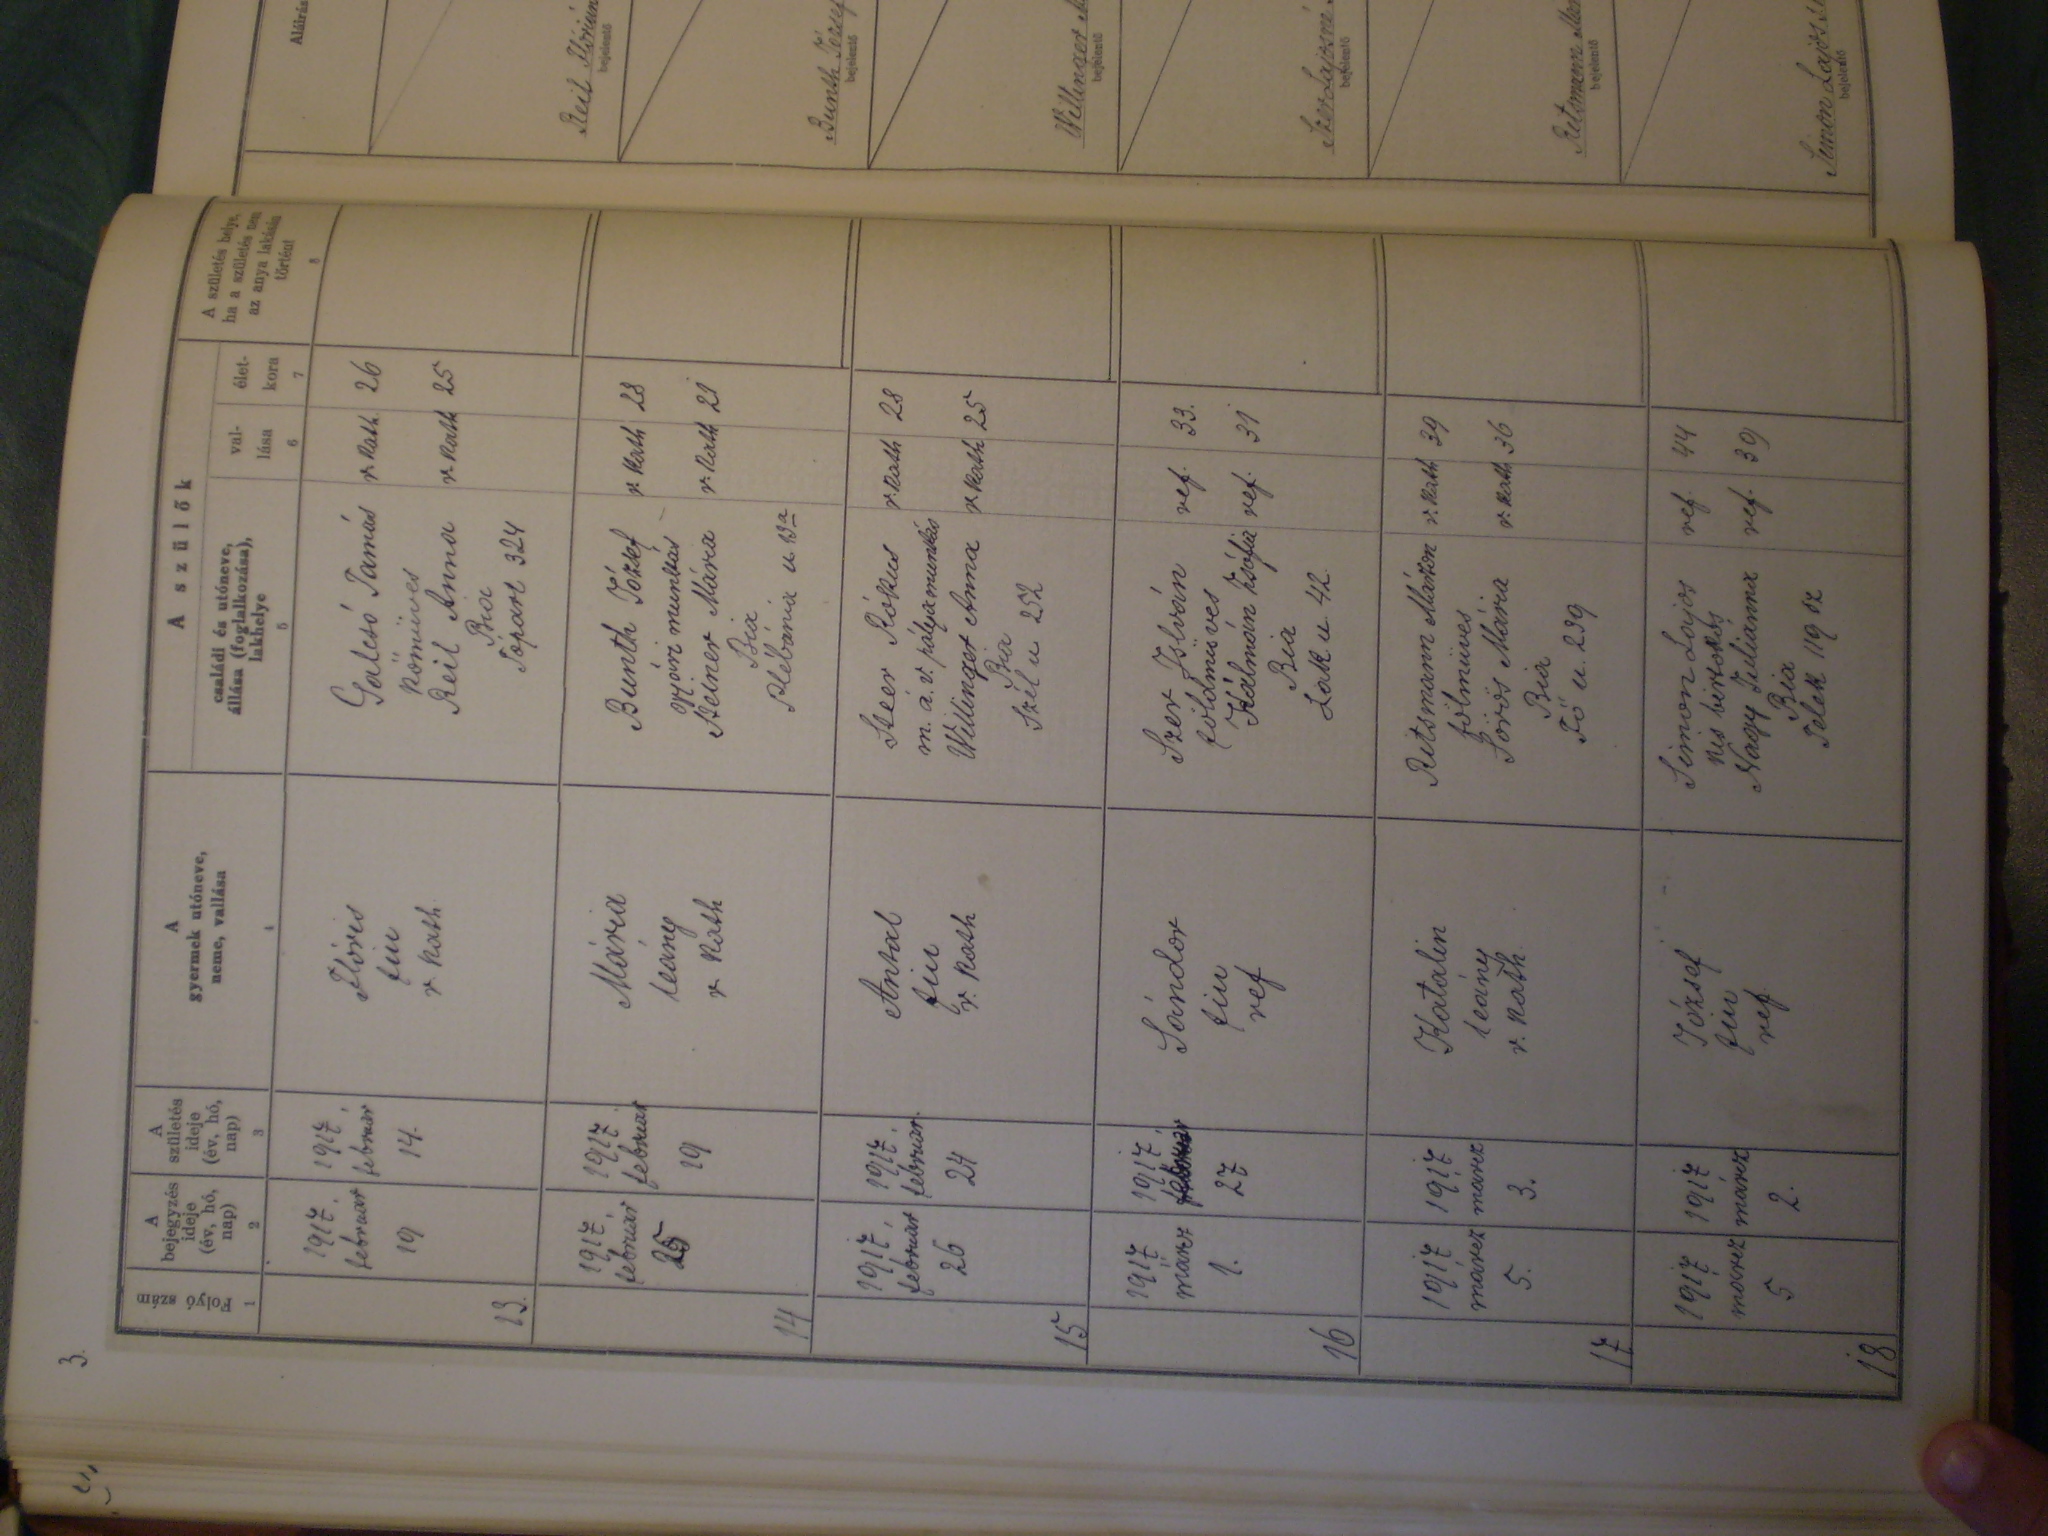 3.
A szülők
Folyó szám
A bejegyzés ideje (év, hó, nap)
A születés ideje (év, hó, nap)
A gyermek utóneve, neme, vallása
családi és utóneve, állása (foglalkozása), lakhelye
val-
lása
élet-
kora
A születés helye, ha a születés nem az anya lakásán történt
1 2 3 4 5 6 7 8
13.
1917. február 19
1917. február 14.
Flóris
fiu
r. kath.
Galcsó Tamás r. kath. 26
kőműves
Reil Anna r. kath 25
Bia
Tópart 324
14
1917. február 25
1917. február 19
Mária
leány
r. kath
Bunth József r. kath 28
gyári munkás
Steiner Mária r. kath 21
Bia
Plébánia u 13a
15
1917. február 26
1917. február. 24
Antal
fiu
r. kath
Steer Rókus r. kath 28
m. á. v. pályamunkás
Willinger Anna r. kath 25
Bia
Szél u 252
16
1917. márcz 1.
1917. február 27
Sándor
fiu
ref
Szer István ref. 33.
földmüves
Kálmán Zsófia ref. 31
Bia
Lak u. 42.
17
1917 márcz 5.
1917 márcz 3.
Katalin
leány
r. kath.
Ritsmann Márton r. kath 39
földmüves
Sörös Mária r. kath. 36
Bia
Fő u. 239
18
1917 márcz 5
1917 márcz 2.
József
fiu
ref.
Simon Lajos ref. 44
kis birtokos
Nagy Juliánna ref. 39
Bia
Telek 119 sz
Aláírás
Reil Flórián
bejelentő
Bunth József
bejelentő
Willinger
bejelentő
Szer Lajosné
bejelentő
Ritsmann
bejelentő
Simon Lajos
bejelentő